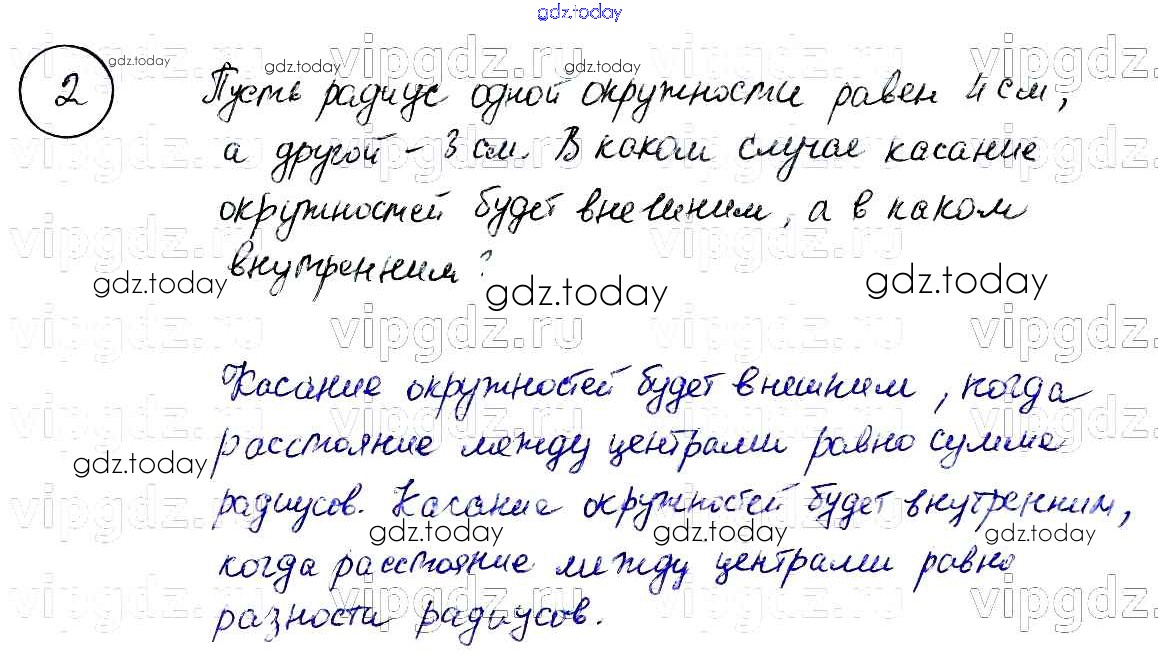 gdz.today
2
Пусть радиус одной окружности равен 4 см,
а другой – 3 см. В каком случае касание
окружностей будет внешним, а в каком
внутренним?
Касание окружностей будет внешним, когда
расстояние между центрами равно сумме
радиусов. Касание окружностей будет внутренним,
когда расстояние между центрами равно
разности радиусов.
gdz.today gdz.today gdz.today
gdz.today gdz.today gdz.today
gdz.today
gdz.today gdz.today gdz.today
vipgdz.ru vipgdz.ru vipgdz.ru vipgdz.ru